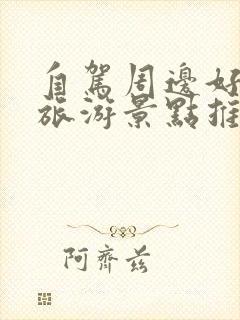 自駕周邊好
旅游景點推
阿齊茲